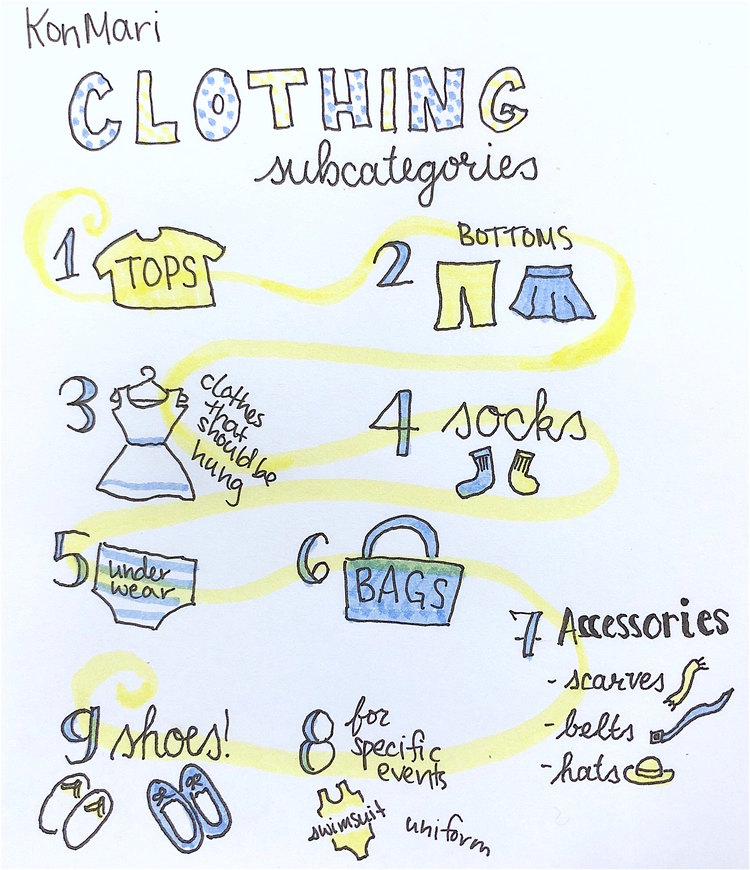 KonMari
CLOTHING
subcategories
1 TOPS
2 BOTTOMS
3 clothes
that
should be
hung
4 socks
5 under
wear
6 BAGS
7 Accessories
- scarves
- belts
- hats
8 for
specific
events
swimsuit uniform
9 shoes!